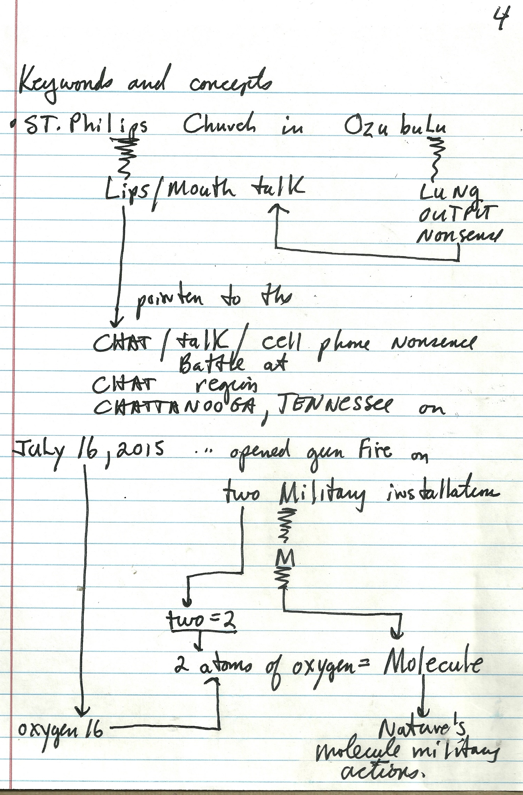 4
Keywords and concepts
• ST. Philips Church in Ozubulu
Lips/Mouth talk
LUNG
OUTPUT
Nonsense
pointen to the
CHAT / talk / cell phone Nonsense
Battle at
CHAT region
CHATTANOOGA, TENNESSEE on
July 16, 2015 ... opened gun Fire on
two Military installations
M
two = 2
2 atoms of oxygen = Molecule
oxygen 16
Nature's
molecule military
actions.